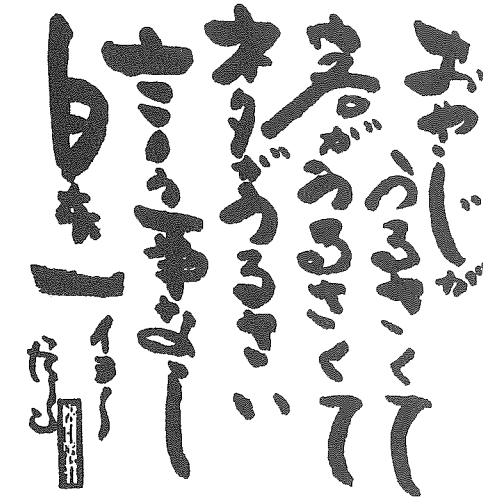 おやじが
うるさくて
客がうるさくて
ネタがうるさい
言う事なし
日本一
イヨー